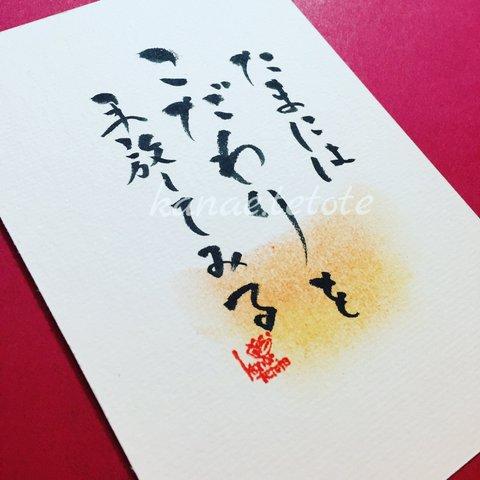 たまには
こだわりを
手放してみる
kanae.tetote